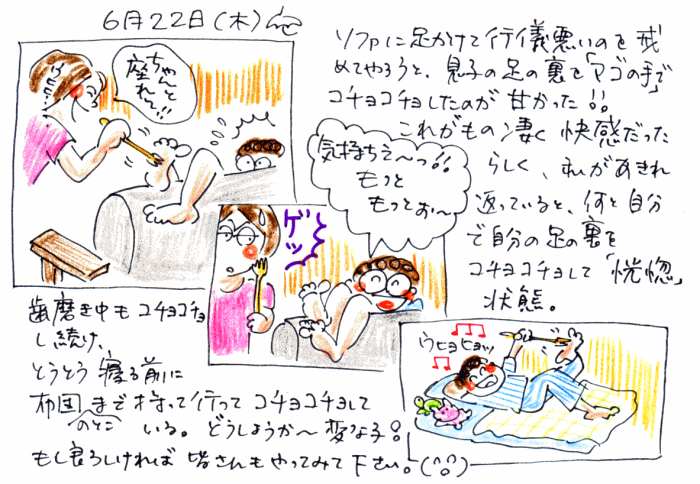 6月22日(木)
ちゃんと
座れっ!!
ソファに足かけて行儀悪いのを戒
めてやろうと、息子の足の裏を「マゴの手で
コチョコチョしたのが甘かった!!
これがもの凄く快感だった
らしく、私があきれ
返っていると、何と自分
で自分の足の裏を
コチョコチョして「恍惚」
状態。
気持ちえ〜っ!!
もっと
もっとぉ〜
ゲッ
歯磨き中もコチョコチョ
し続け、
とうとう寝る前に
布団まで持って行ってコチョコチョして
のとこ
いる。どうしようか〜変な子!
もし宜ろしければ皆さんもやってみて下さい。(^o^)
ウヒョヒョッ